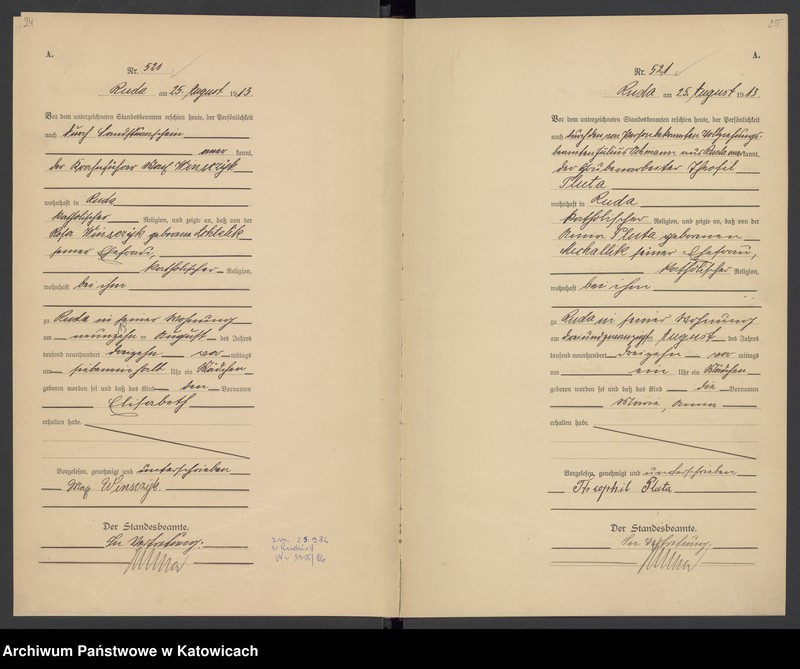 24
A.
Nr. 520
Ruda am 25. August 1913.
Vor dem unterzeichneten Standesbeamten erschien heute, der Persönlichkeit
nach durch
kannt,
der Kranführer Max Winsczyk
wohnhaft in Ruda
katholischer Religion, und zeigte an, daß von der
Winsczyk geborene
seiner Ehefrau,
katholischer Religion,
wohnhaft bei ihm
zu Ruda in seiner Wohnung
am neunzehn August des Jahres
tausend neunhundert dreizehn vor mittags
um sieben einhalb Uhr ein Mädchen
geboren worden sei und daß das Kind den Vornamen
Elisabeth
erhalten habe.
Vorgelesen, genehmigt und unterschrieben
Max Winsczyk.
Der Standesbeamte.
In Vertretung:
25.
A.
Nr. 521
Ruda am 25. August 1913.
Vor dem unterzeichneten Standesbeamten erschien heute, der Persönlichkeit
nach durch den von Person bekannten Vollziehungs-
beamten Julius aus Ruda anerkannt,
der Grubenarbeiter Theofil
Pluta
wohnhaft in Ruda
katholischer Religion, und zeigte an, daß von der
Anna Pluta geborenen
Michallik seiner Ehefrau,
katholischer Religion,
wohnhaft bei ihm
zu Ruda in seiner Wohnung
am dreiundzwanzigsten August des Jahres
tausend neunhundert dreizehn vor mittags
um ein Uhr ein Mädchen
geboren worden sei und daß das Kind die Vornamen
Maria, Anna
erhalten habe.
Vorgelesen, genehmigt und unterschrieben
Theophil Pluta
Der Standesbeamte.
In Vertretung:
Archiwum Państwowe w Katowicach